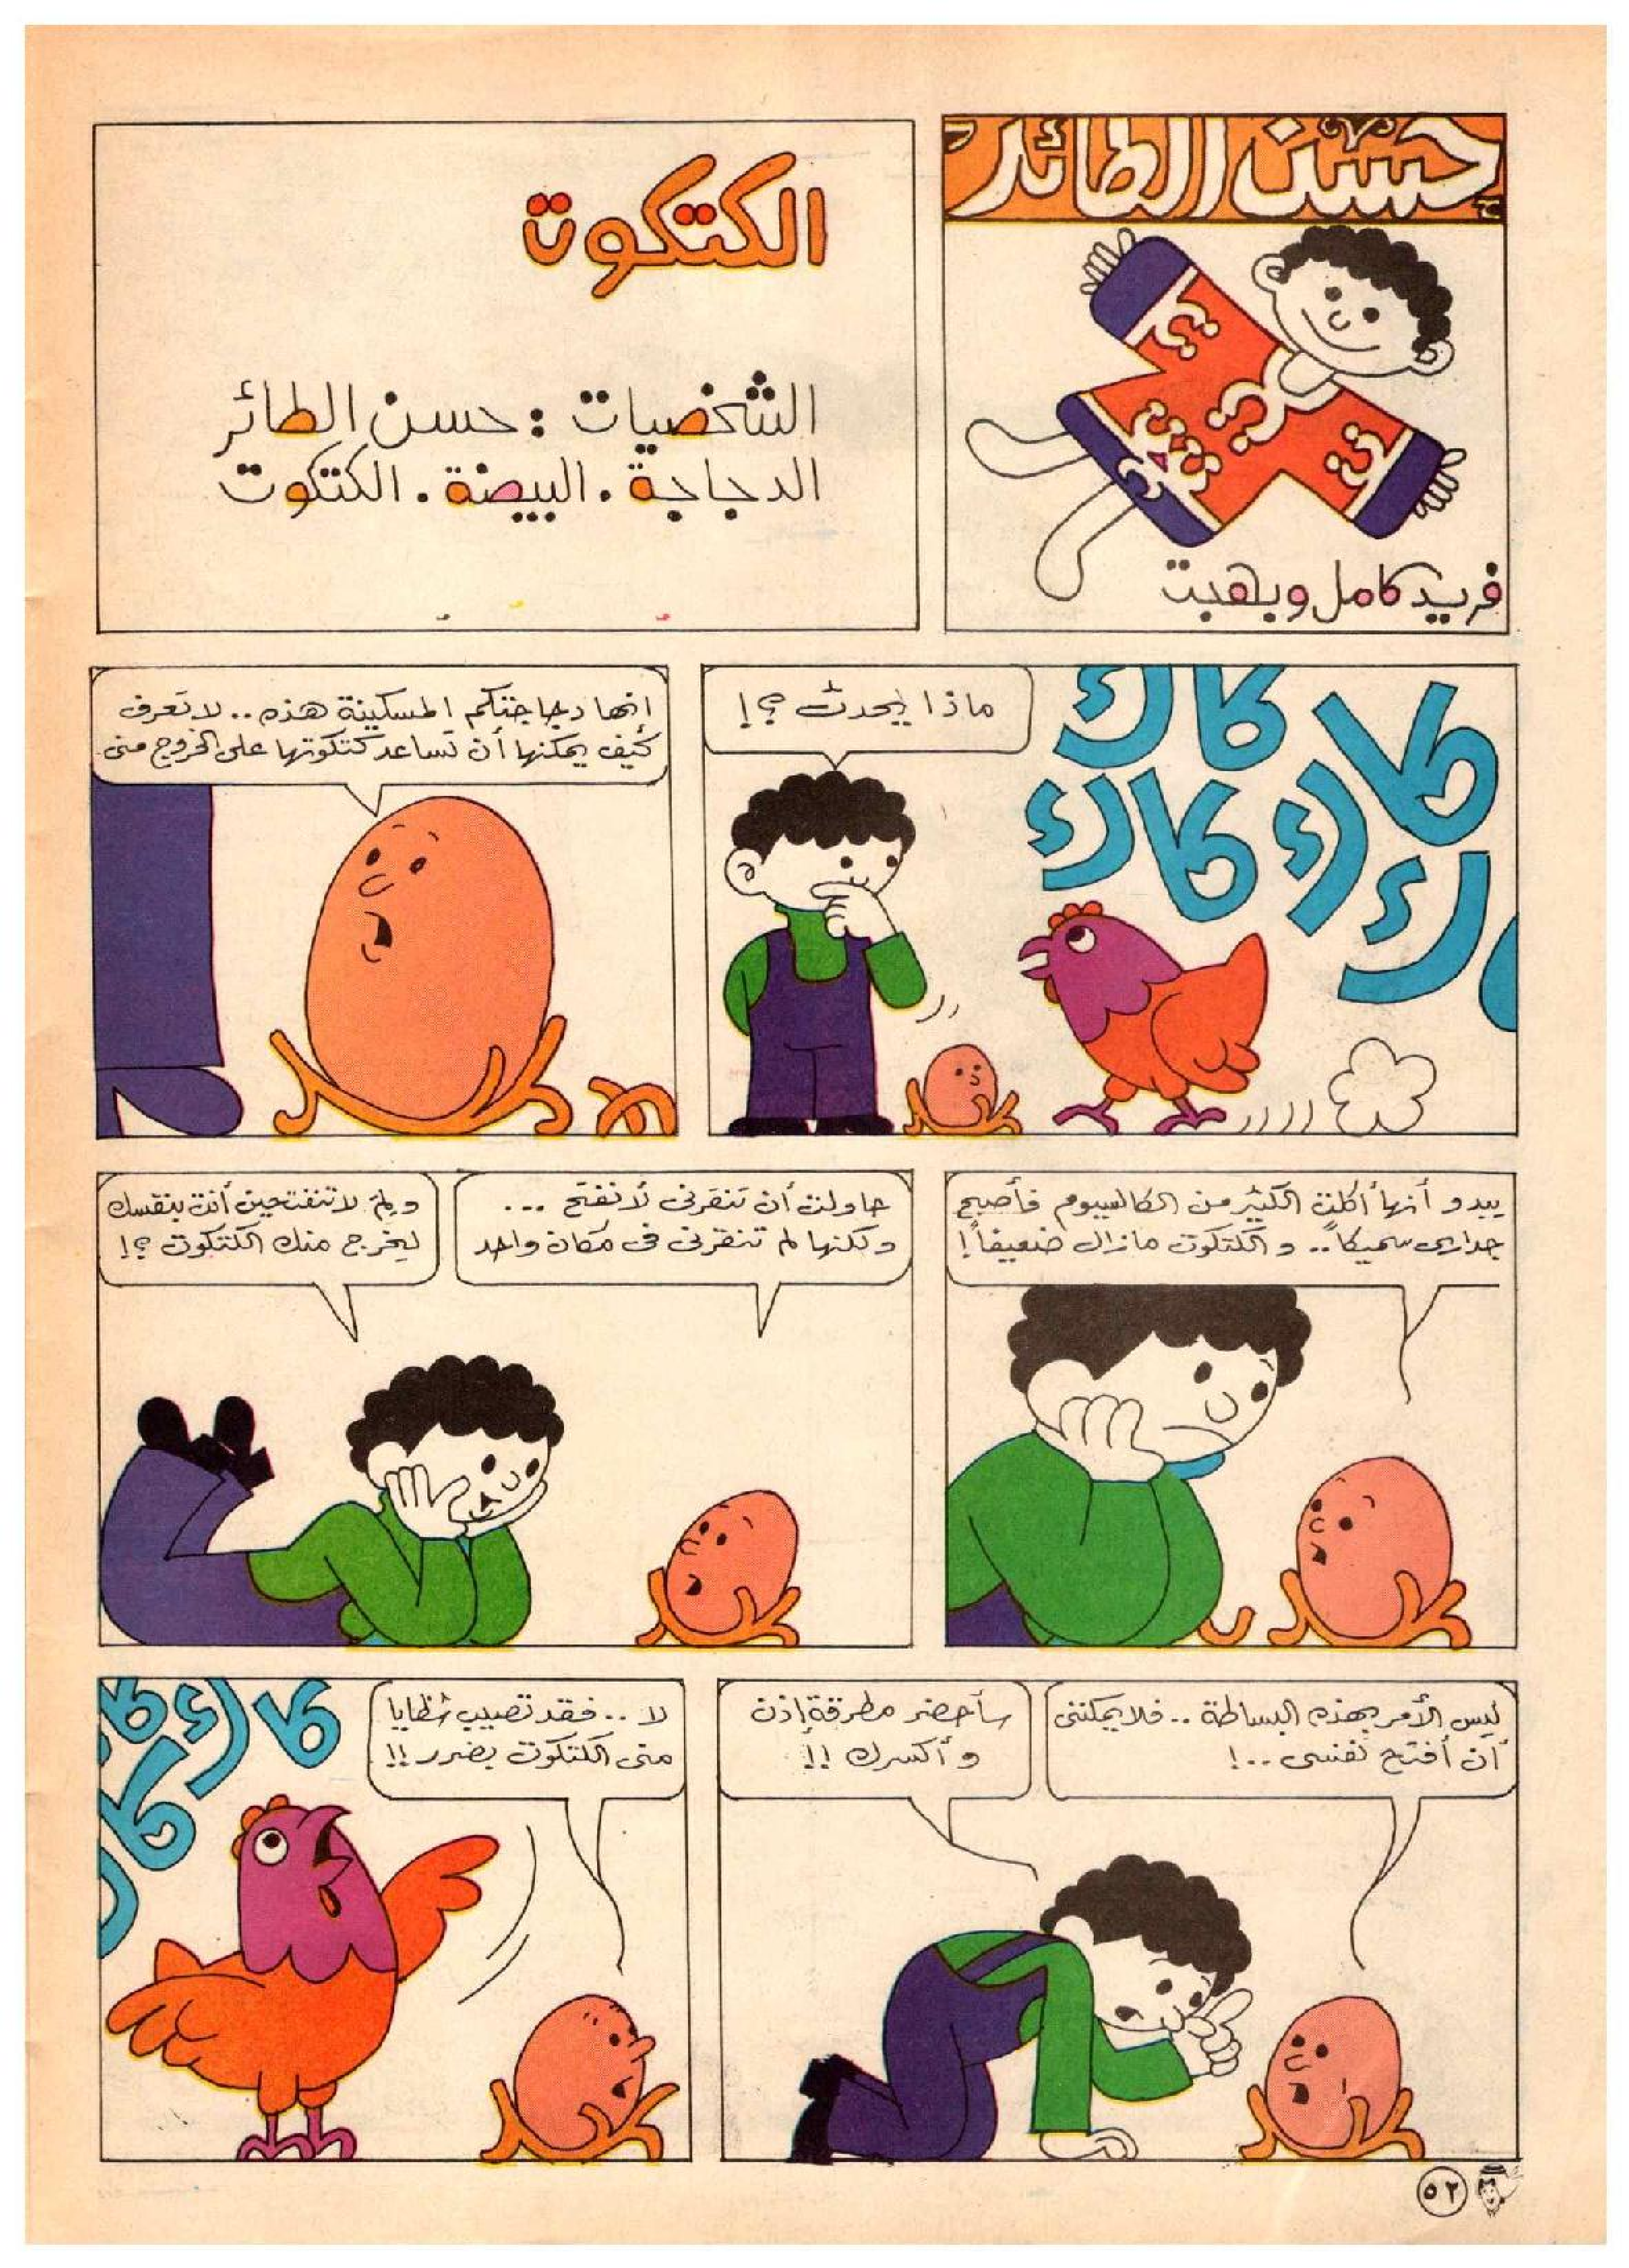 حسن الطائر
فريد كامل وبهجت
الكتكوت
الشخصيات : حسن الطائر
الدجاجة . البيضة . الكتكوت
كاك كاك
كاك كاك
ماذا يحدث ؟!
انها دجاجتكم المسكينة هذه .. لا تعرف
كيف يمكنها أن تساعد كتكوتها على الخروج منى
يبدو أنها أكلت الكثير من الكالسيوم فأصبح
جدارى سميكاً .. و الكتكوت مازال ضعيفاً !
حاولت أن تنقرنى لأنفتح ...
و لكنها لم تنقرنى فى مكان واحد
و لم لا تنفتحين أنت بنفسك
ليخرج منك الكتكوت ؟!
ليس الأمر بهذه البساطة .. فلا يمكننى
أن أفتح نفسى ..!
سأحضر مطرقة إذن
و أكسرك !!
لا .. فقد تصيب شظايا
منى الكتكوت بضرر !!
كاك
كاك
٥٢